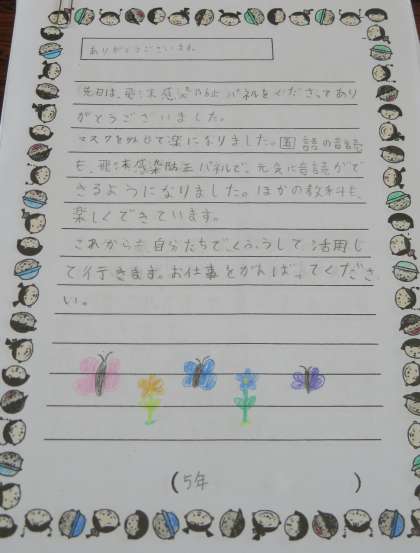 ありがとうございます。
先日は、飛沫感染防止パネルをくださってあり
がとうございました。
マスクを外せて楽になりました。国語の音読
も、飛沫感染防止パネルで、元気に音読がで
きるようになりました。ほかの教科も、
楽しくできています。
これからも自分たちでくふうして、活用し
て行きます。お仕事をがんばってくださ
い。
(5年 )